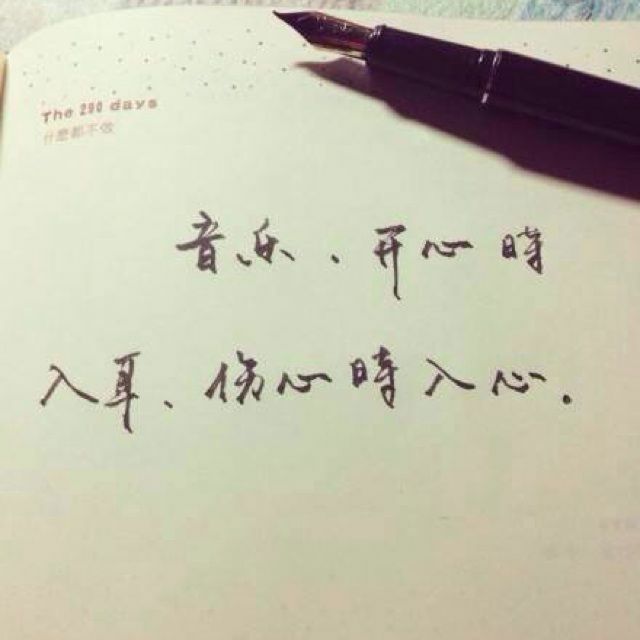 The 290 days
什麼都不做
音乐、开心時
入耳、伤心時入心.